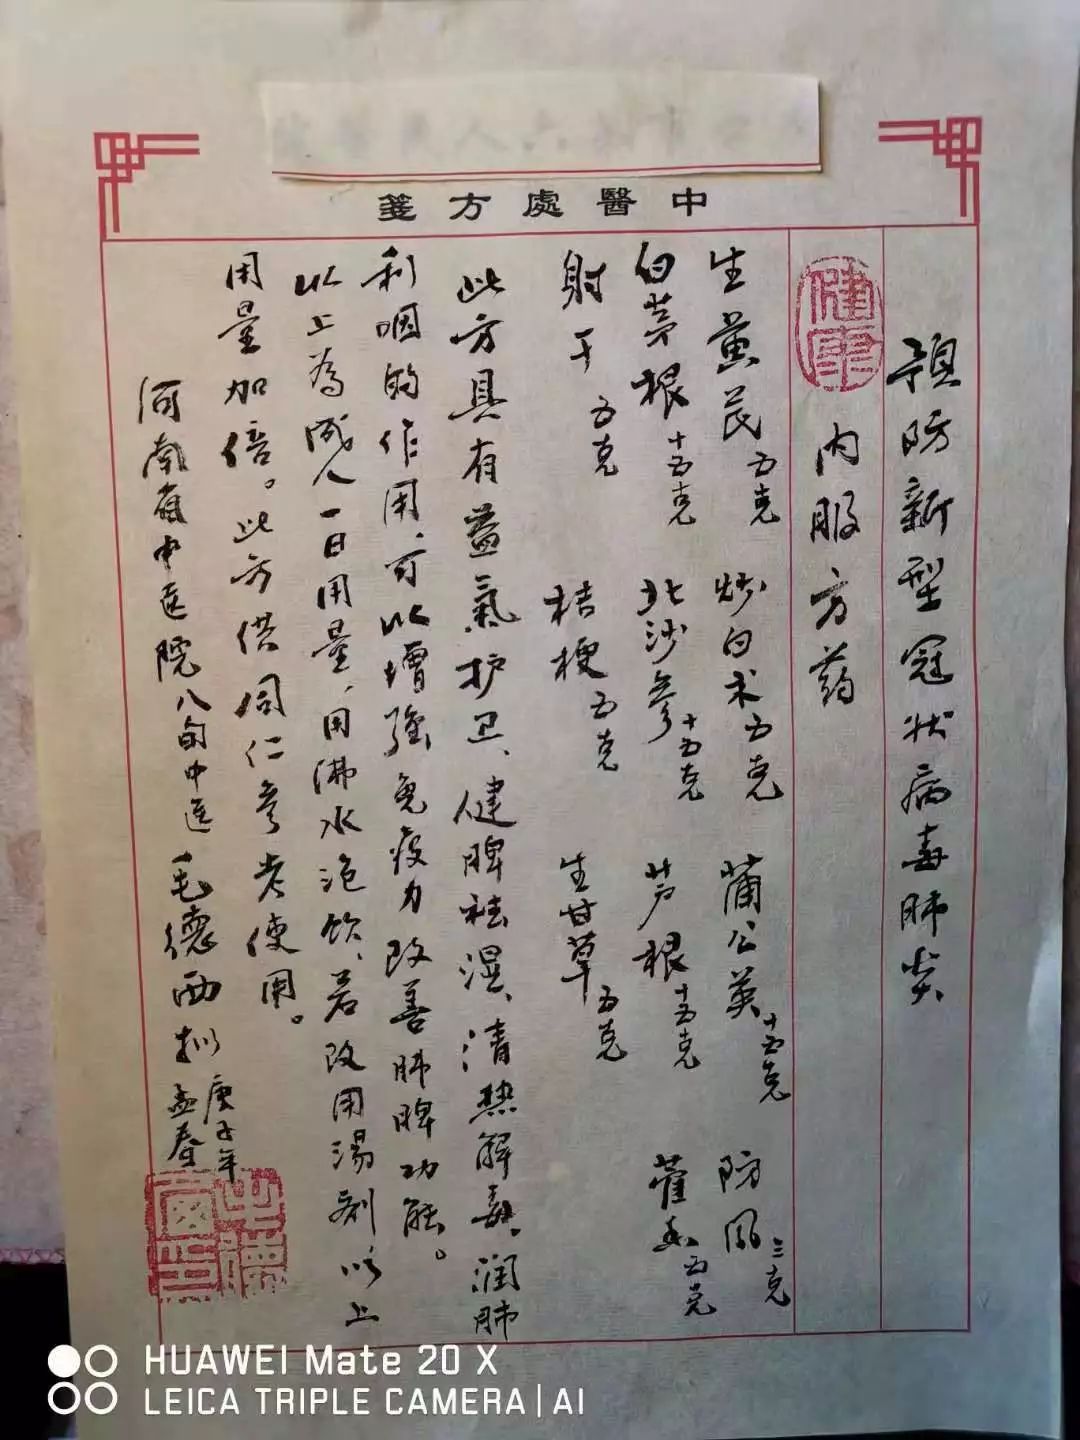 中醫處方箋
預防新型冠状病毒肺炎
健康
内服方药
生黄芪五克 炒白术五克 蒲公英十五克 防风三克
白茅根十五克 北沙参十五克 芦根十五克 藿香五克
射干五克 桔梗五克 生甘草五克
此方具有益氣护卫、健脾祛湿、清热解毒、润肺
利咽的作用，可以增强免疫力改善肺脾功能。
以上為成人一日用量，用沸水泡饮，若改用湯剂以上
用量加倍。此方供同仁参考使用。
河南省中医院八旬中医毛德西拟 庚子年
孟春
HUAWEI Mate 20 X
LEICA TRIPLE CAMERA | AI